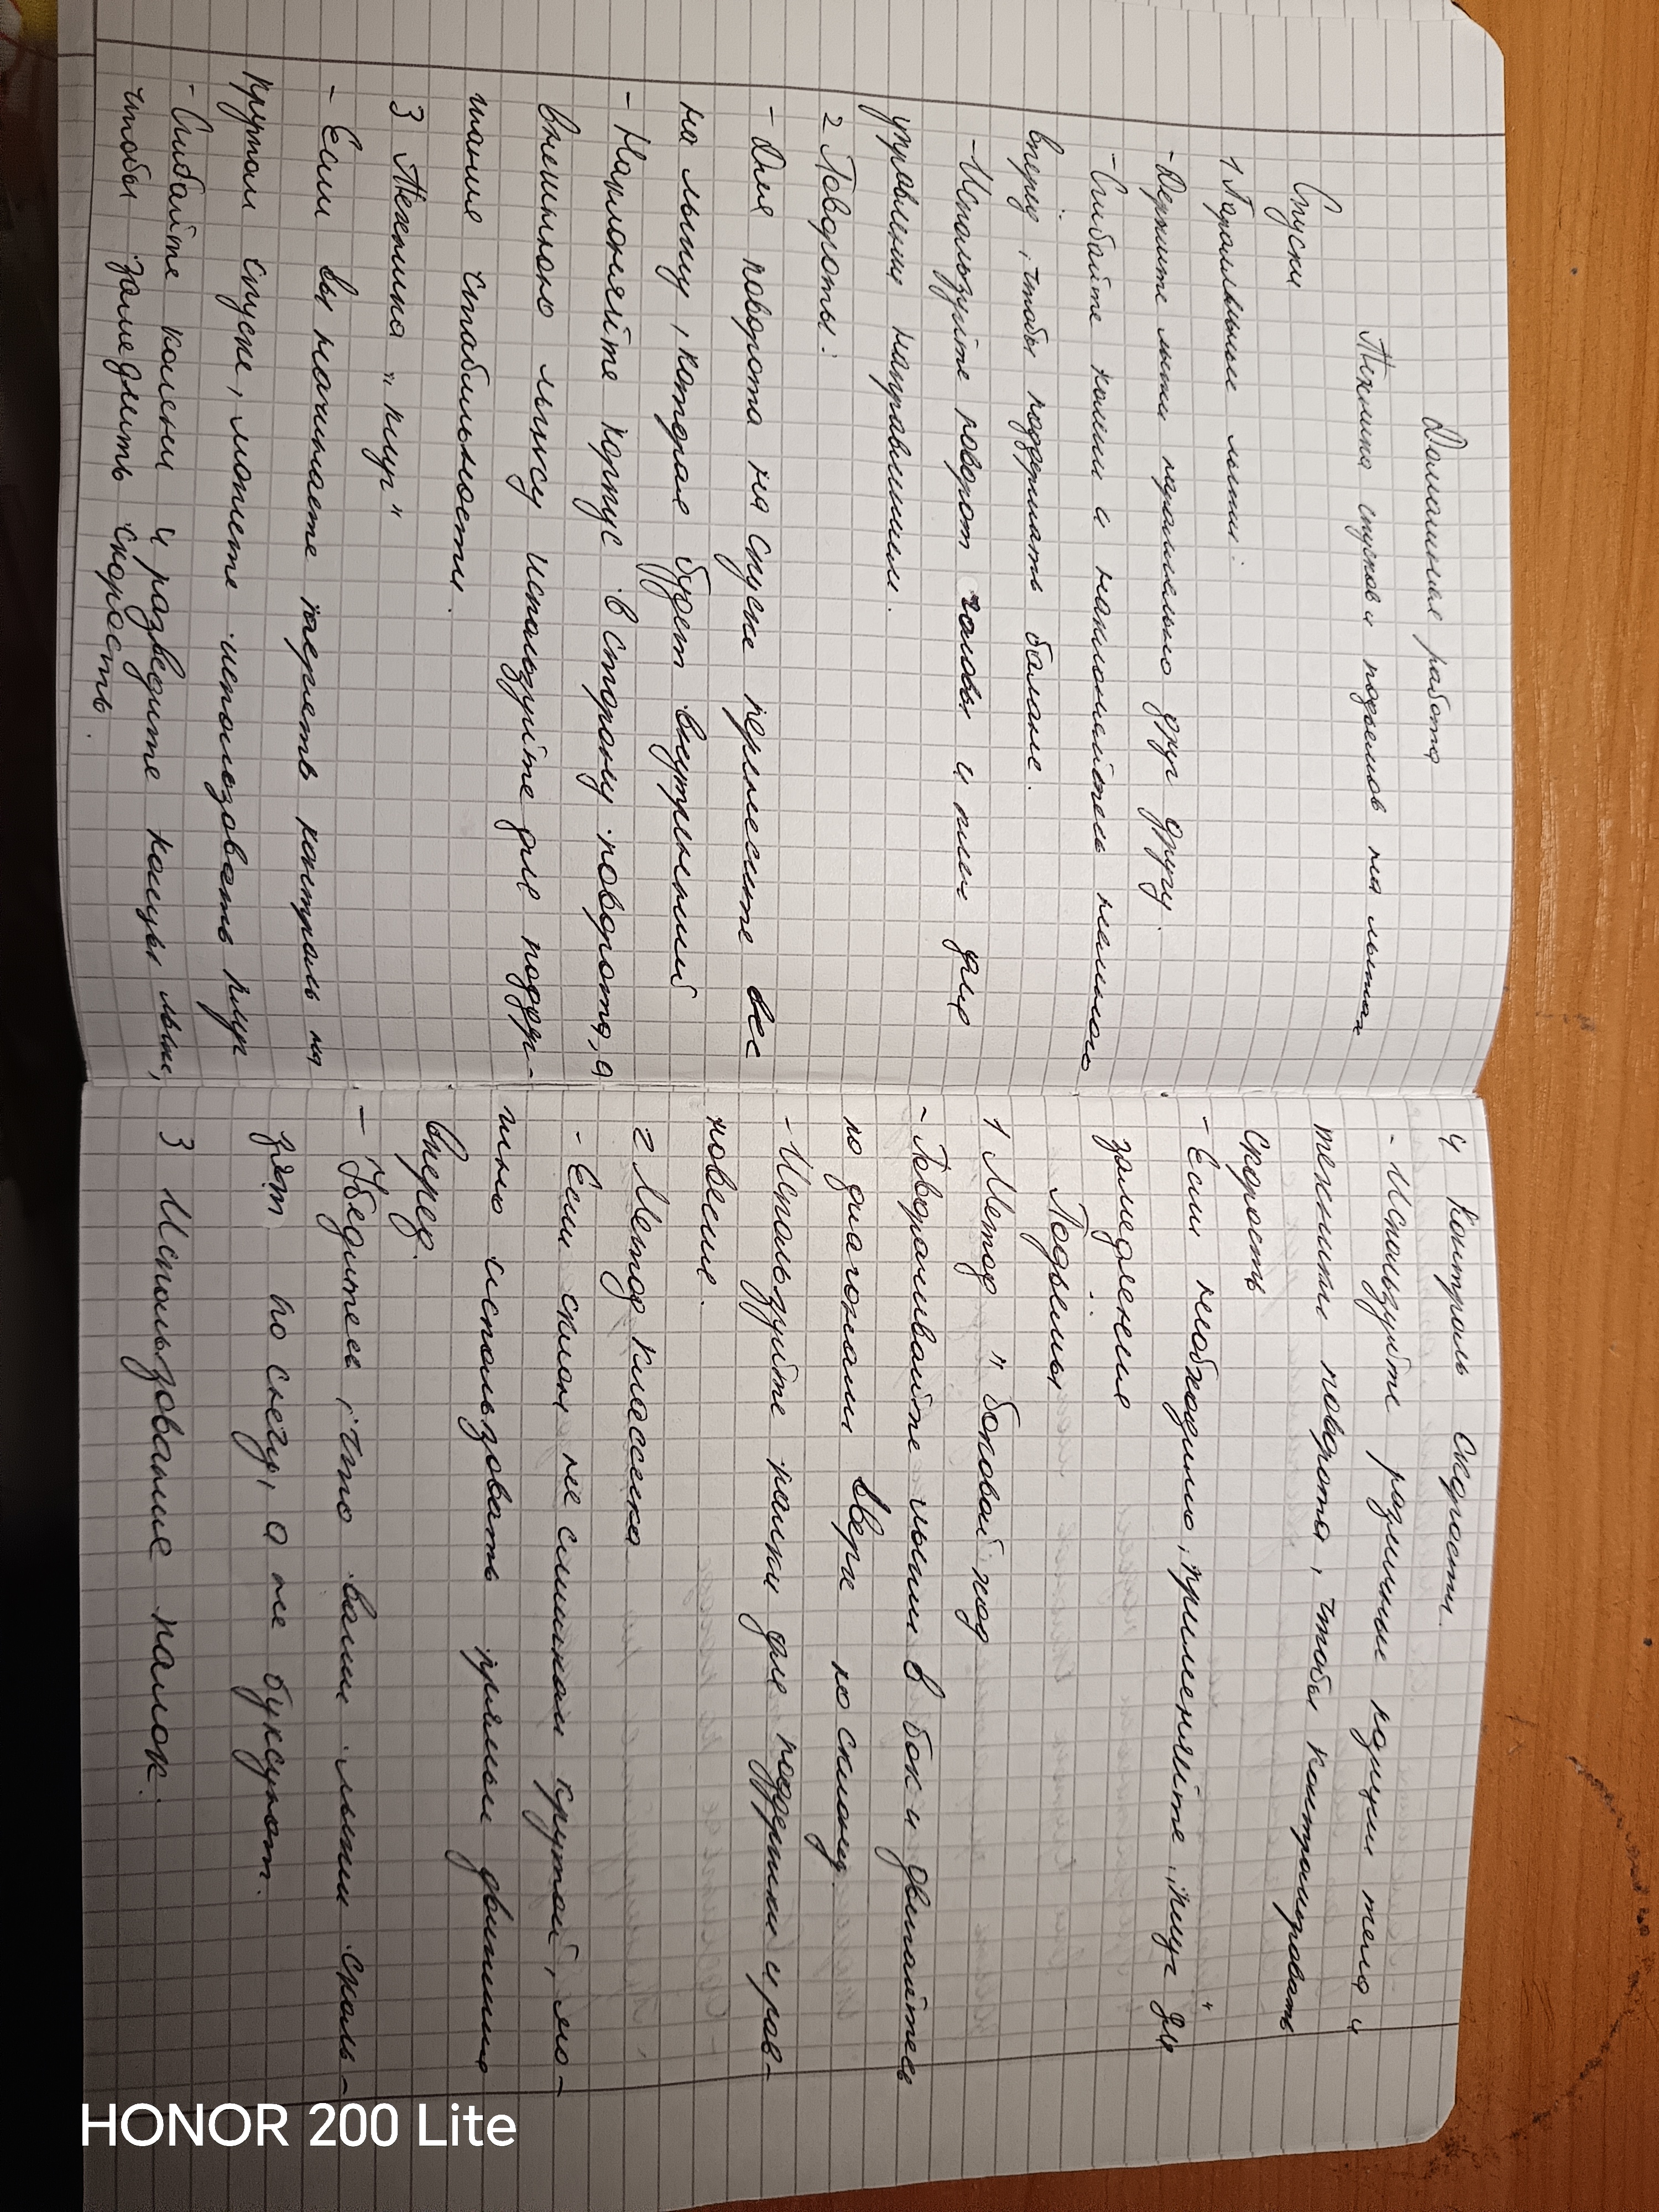 Домашняя работа
Техника спусков и подъемов на лыжах
Спуски
1 Паралльные лыжи:
- Держите лыжи паралельно друг другу.
- Сгибайте колени и наклоняйтесь немного
вперёд, чтобы поддержать баланс.
- Используйте поворот головы и плеч для
управления направлением.
2 Повороты:
- Для поворота на спуске перенесите вес
на лыжу, которая будет внутренней
- Наклоняйте корпус в сторону поворота, а
внешнюю лыжу используйте для поддер-
жания стабильности.
3 Техника „плуг"
- Если вы начинаете терять контроль на
крутом спуске, можете использовать плуг
- Сгибайте колени и разведите концы лыж,
чтобы замедлить скорость.
4 Контроль скорости.
- Используйте различные позиции тела и
техники поворота, чтобы контролировать
скорость
- Если необходимо, применяйте „плуг" для
замедления
Подъёмы
1 Метод "боковой ход
- Поворачивайте лыжи в бок и двигайтесь
по диагонали вверх по склону.
- Используйте палки для поддержки и рав-
новесия.
2 Метод классека
- Если склон не слишком крутой, мо-
жно использовать прямое движение
вперед.
- Убедитесь, что ваши лыжи сколь-
зят по снегу, а не буксуют.
3 Использование палок.
HONOR 200 Lite